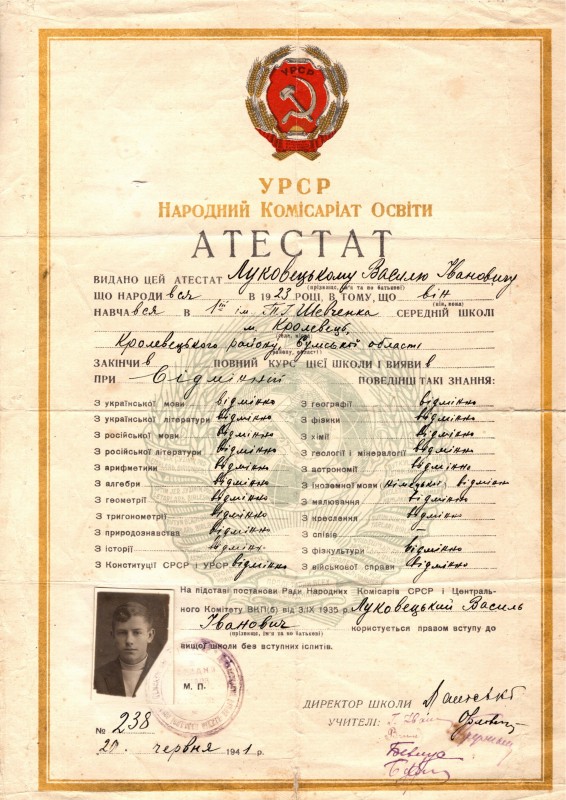 УРСР
УРСР
НАРОДНИЙ КОМІСАРІАТ ОСВІТИ
АТЕСТАТ
ВИДАНО ЦЕЙ АТЕСТАТ Луковецькому Василю Івановичу
(прізвище, ім'я та по батькові)
ЩО НАРОДИ вся В 1923 РОЦІ, В ТОМУ, ЩО він
(він, вона)
НАВЧА вся В 1ій ім. Т.Г. Шевченка СЕРЕДНІЙ ШКОЛІ
м. Кролевець,
Кролевецького району, Сумської області
району, області)
ЗАКІНЧИ в ПОВНИЙ КУРС ЦІЄЇ ШКОЛИ І ВИЯВИ в
ПРИ Відмінній ПОВЕДІНЦІ ТАКІ ЗНАННЯ:
З української мови відмінно
З української літератури відмінно
З російської мови відмінно
З російської літератури відмінно
З арифметики відмінно
З алгебри відмінно
З геометрії відмінно
З тригонометрії відмінно
З природознавства відмінно
З історії відмінн.
З Конституції СРСР і УРСР відмінно
З географії відмінно
З фізики відмінно
З хімії відмінно
З геології і мінералогії відмінно
З астрономії відмінно
З іноземної мови (німецької) відмінно
З малювання відмінно
З креслення відмінно
З співів –
З фізкультури відмінно
З військової справи відмінно
На підставі постанови Ради Народних Комісарів СРСР і Централь-
ного Комітету ВКП(б) від 3/IX 1935 р. Луковецький Василь
Іванович користується правом вступу до
(прізвище, ім'я та по батькові)
вищої школи без вступних іспитів.
М. П.
ДИРЕКТОР ШКОЛИ
УЧИТЕЛІ:
№ 238
20. червня 1941 р.